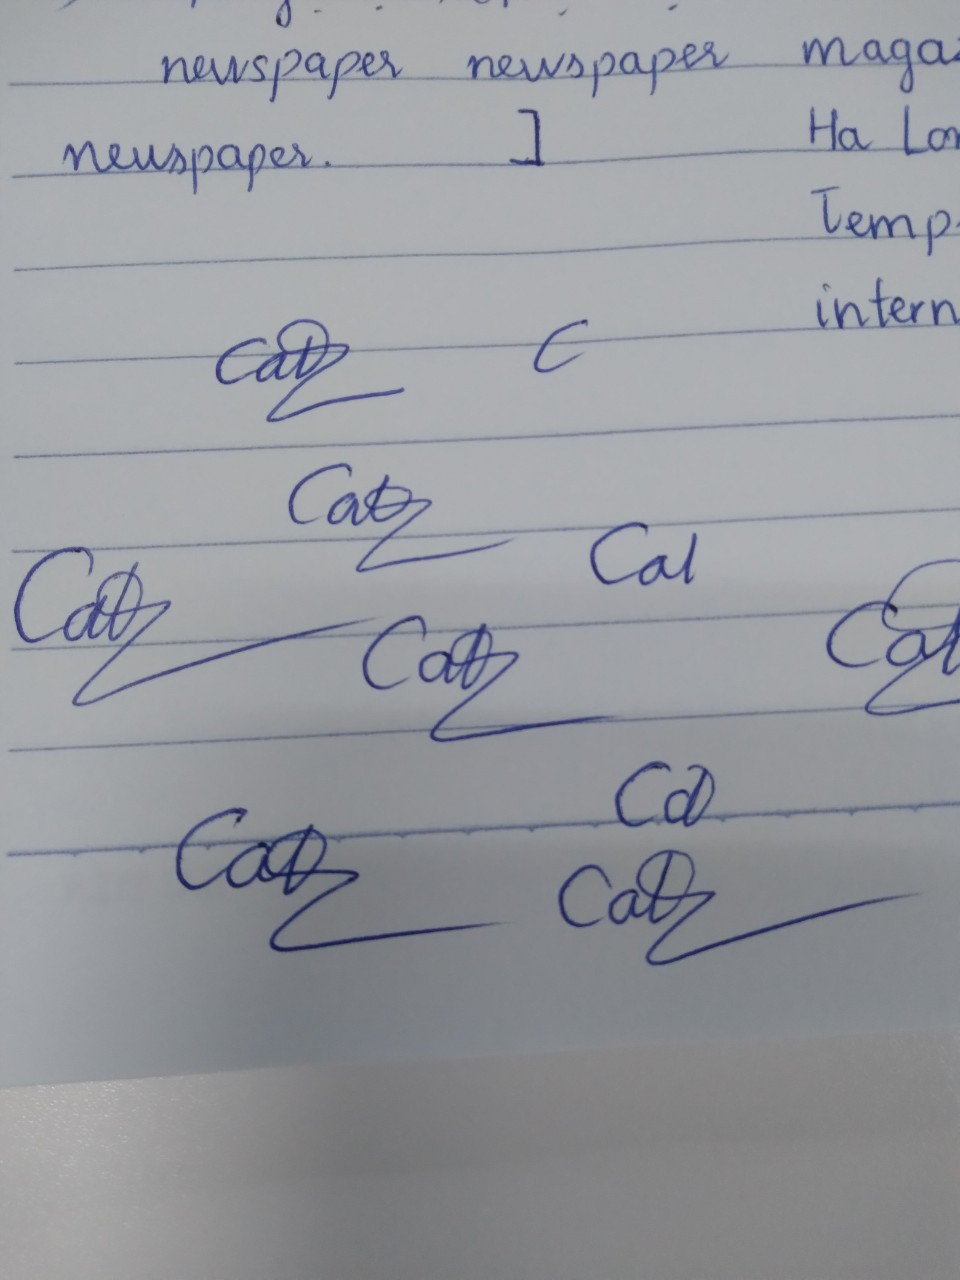 newspaper newspaper maga
newspaper. ] Ha Lon
Temp
intern
Cat C
Cat
Cal
Cat
Cat Cat
Cat
Cat